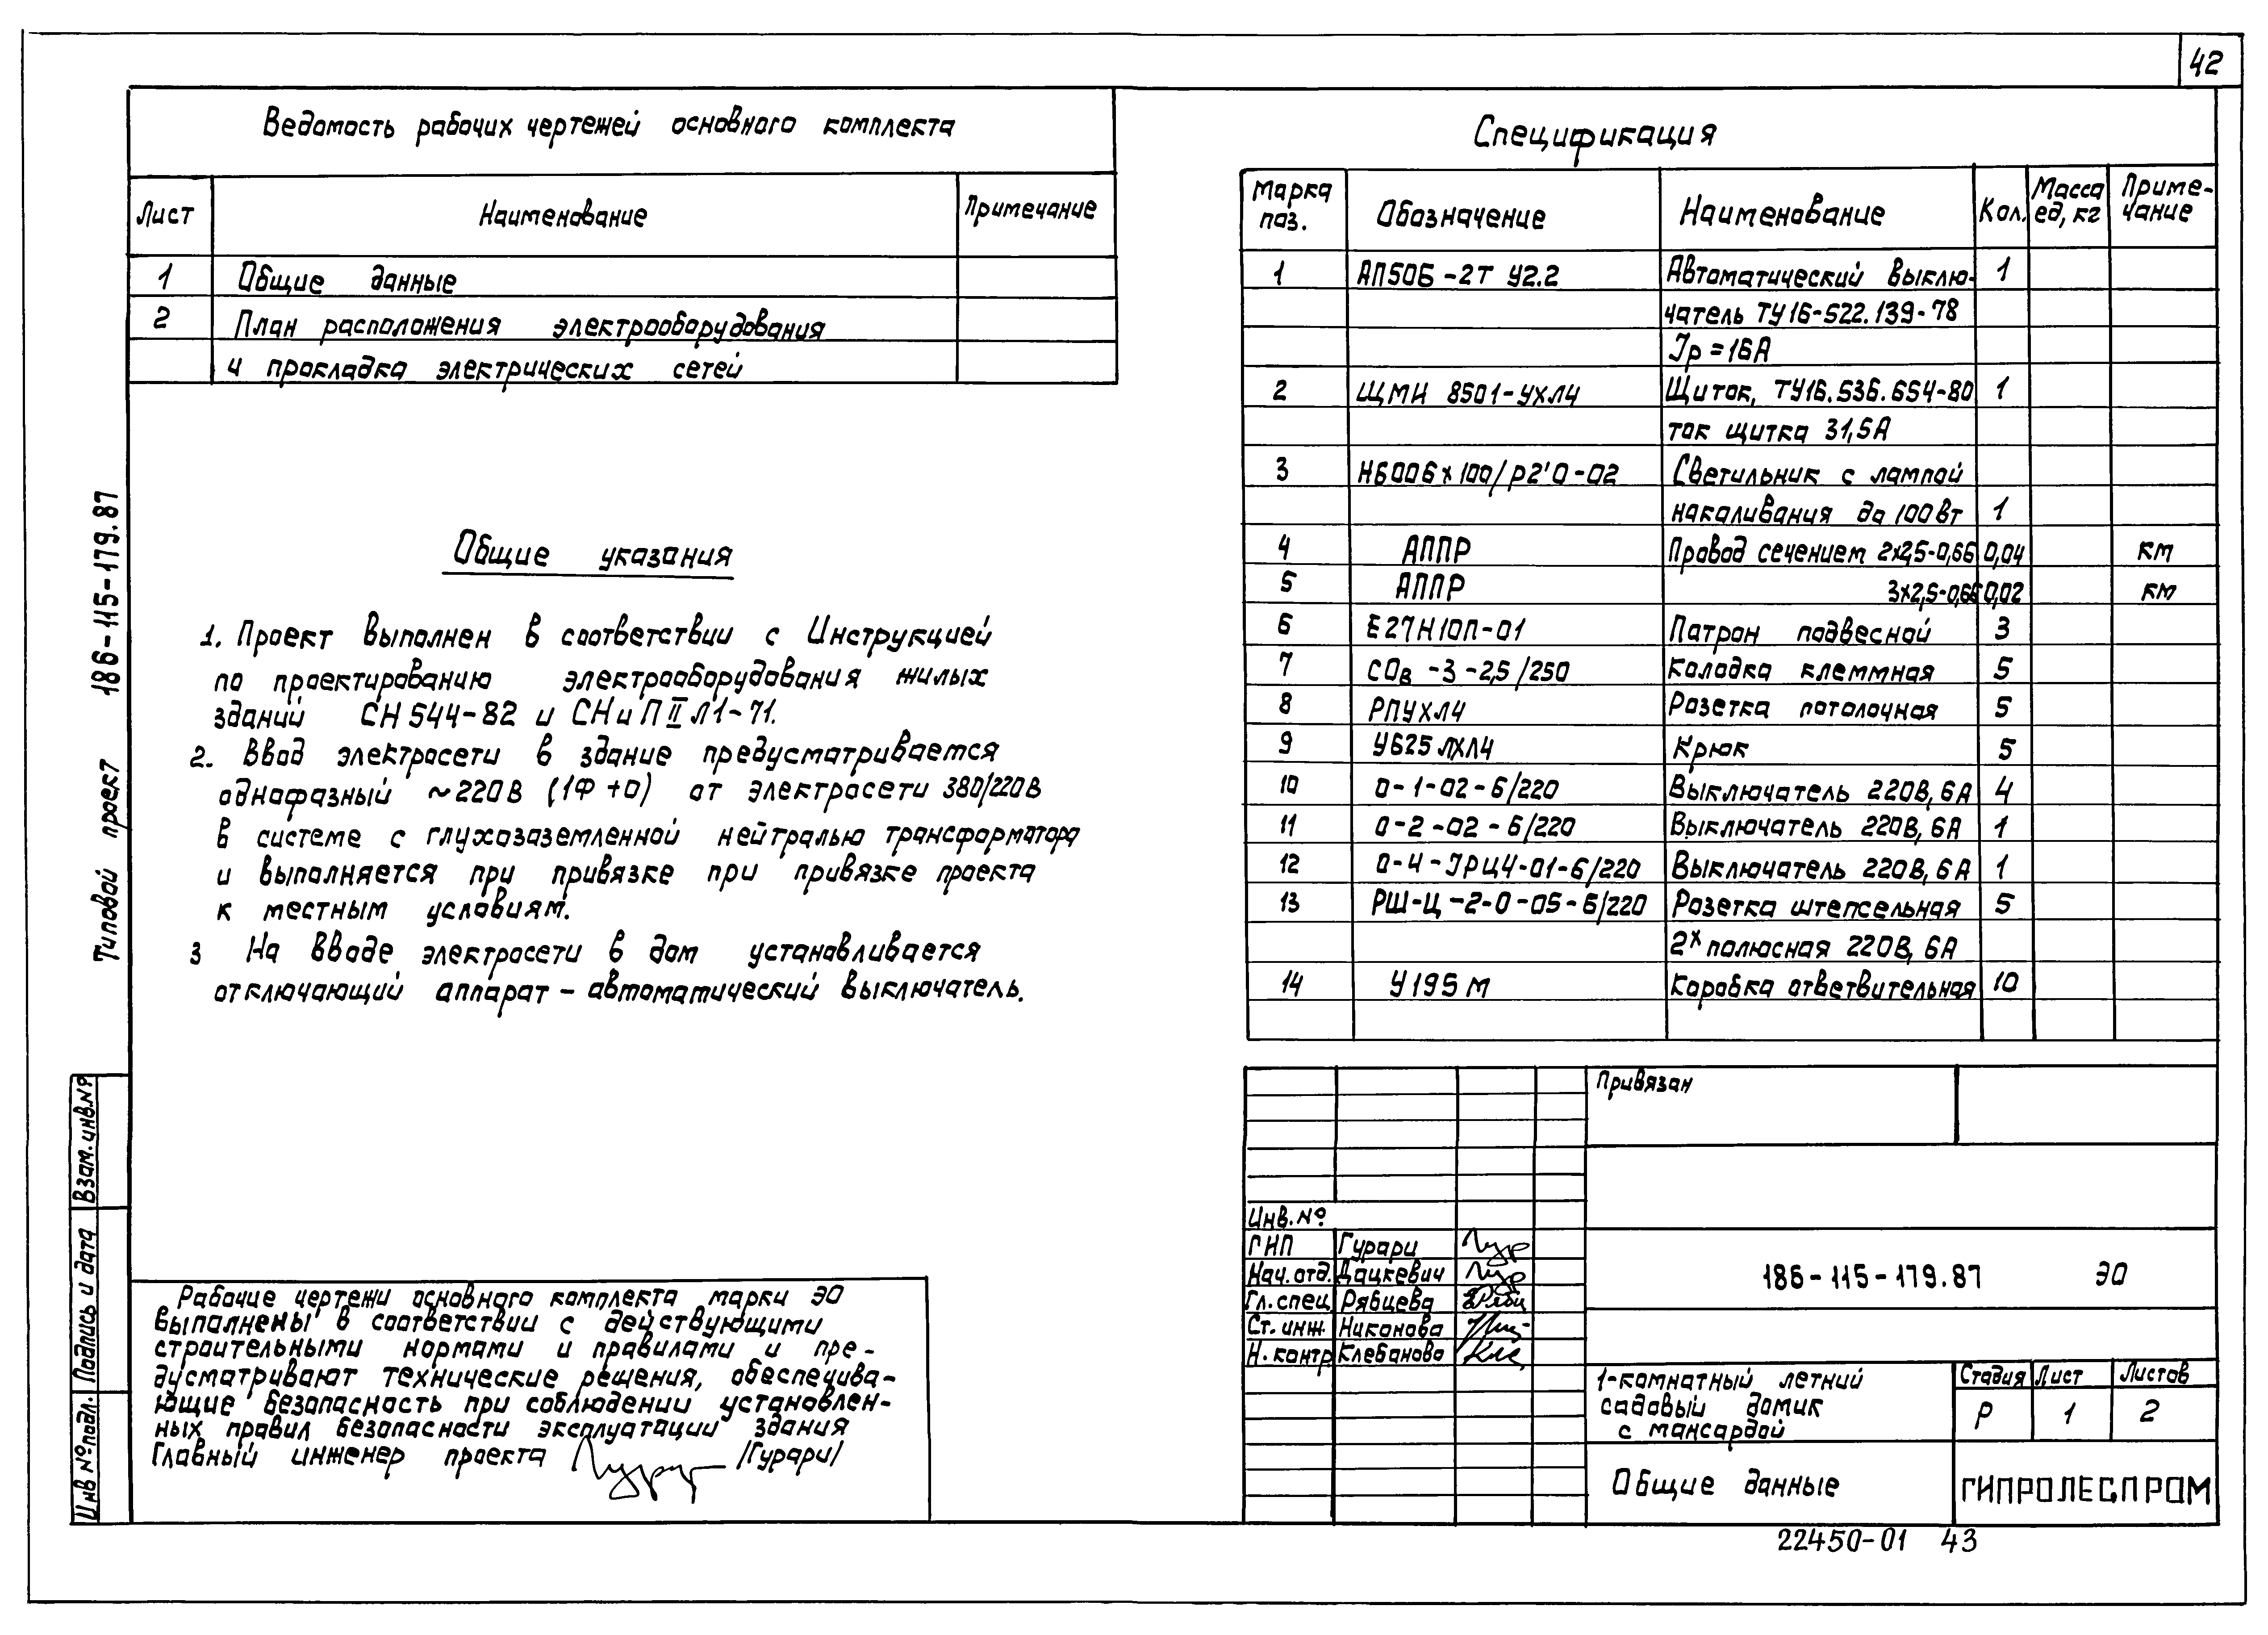 42
Ведомость рабочих чертежей основного комплекта
Лист Наименование Примечание
1 Общие данные
2 План расположения электрооборудования
и прокладка электрических сетей
Общие указания
1. Проект выполнен в соответствии с Инструкцией
по проектированию электрооборудования жилых
зданий СН 544-82 и СНиП II Л1-71.
2. Ввод электросети в здание предусматривается
однофазный ~220В (1Ф+0) от электросети 380/220В
в системе с глухозаземленной нейтралью трансформатора
и выполняется при привязке при привязке проекта
к местным условиям.
3 На вводе электросети в дом устанавливается
отключающий аппарат - автоматический выключатель.
Типовой проект 186-115-179.87
Взам. инв.№
Подпись и дата
Инв № подл.
Рабочие чертежи основного комплекта марки ЭО
выполнены в соответствии с действующими
строительными нормами и правилами и пре-
дусматривают технические решения, обеспечива-
ющие безопасность при соблюдении установлен-
ных правил безопасности эксплуатации здания
Главный инженер проекта /Гурари/
Спецификация
Марка поз. Обозначение Наименование Кол. Масса ед, кг Приме-чание
1 АП50Б-2Т У2.2 Автоматический выклю- 1
чатель ТУ16-522.139-78
Jр=16А
2 ЩМИ 8501-УХЛ4 Щиток, ТУ16.536.654-80 1
ток щитка 31,5А
3 НБ006х100/Р2'0-02 Светильник с лампой
накаливания до 100Вт 1
4 АППР Провод сечением 2х2,5-0,66 0,04 км
5 АППР 3х2,5-0,66 0,02 км
6 Е27Н10П-01 Патрон подвесной 3
7 СОв-3-2,5/250 Колодка клеммная 5
8 РПУХЛ4 Розетка потолочная 5
9 У625ЛХЛ4 Крюк 5
10 0-1-02-6/220 Выключатель 220В, 6А 4
11 0-2-02-6/220 Выключатель 220В, 6А 1
12 0-4-JРЦ4-01-6/220 Выключатель 220В, 6А 1
13 РШ-Ц-2-0-05-6/220 Розетка штепсельная 5
2х полюсная 220В, 6А
14 У195м Коробка ответвительная 10
Привязан
Инв.№
ГИП Гурари
Нач.отд. Дацкевич
Гл.спец. Рябцева
Ст.инж. Никонова
Н.контр Клебанова
186-115-179.87 ЭО
1-комнатный летний
садовый домик
с мансардой
Стадия Лист Листов
Р 1 2
Общие данные
ГИПРОЛЕСПРОМ
22450-01 43